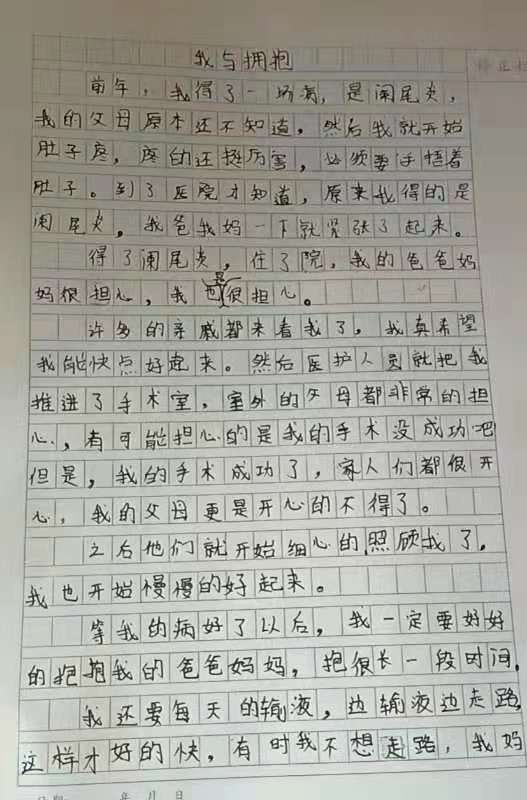 我与拥抱
前年，我得了一场病，是阑尾炎，
我的父母原本还不知道，然后我就开始
肚子疼，疼的还挺厉害，必须要手捂着
肚子。到了医院才知道，原来我得的是
阑尾炎，我爸我妈一下就紧张了起来。
得了阑尾炎，住了院，我的爸爸妈
妈很担心，我也是很担心。
许多的亲戚都来看我了，我真希望
我能快点好起来。然后医护人员就把我
推进了手术室，室外的父母都非常的担
心，有可能担心的是我的手术没成功吧
但是，我的手术成功了，家人们都很开
心，我的父母更是开心的不得了。
之后他们就开始细心的照顾我了，
我也开始慢慢的好起来。
等我的病好了以后，我一定要好好
的抱抱我的爸爸妈妈，抱很长一段时间，
我还要每天的输液，边输液边走路，
这样才好的快，有时我不想走路，我妈
年 月 日